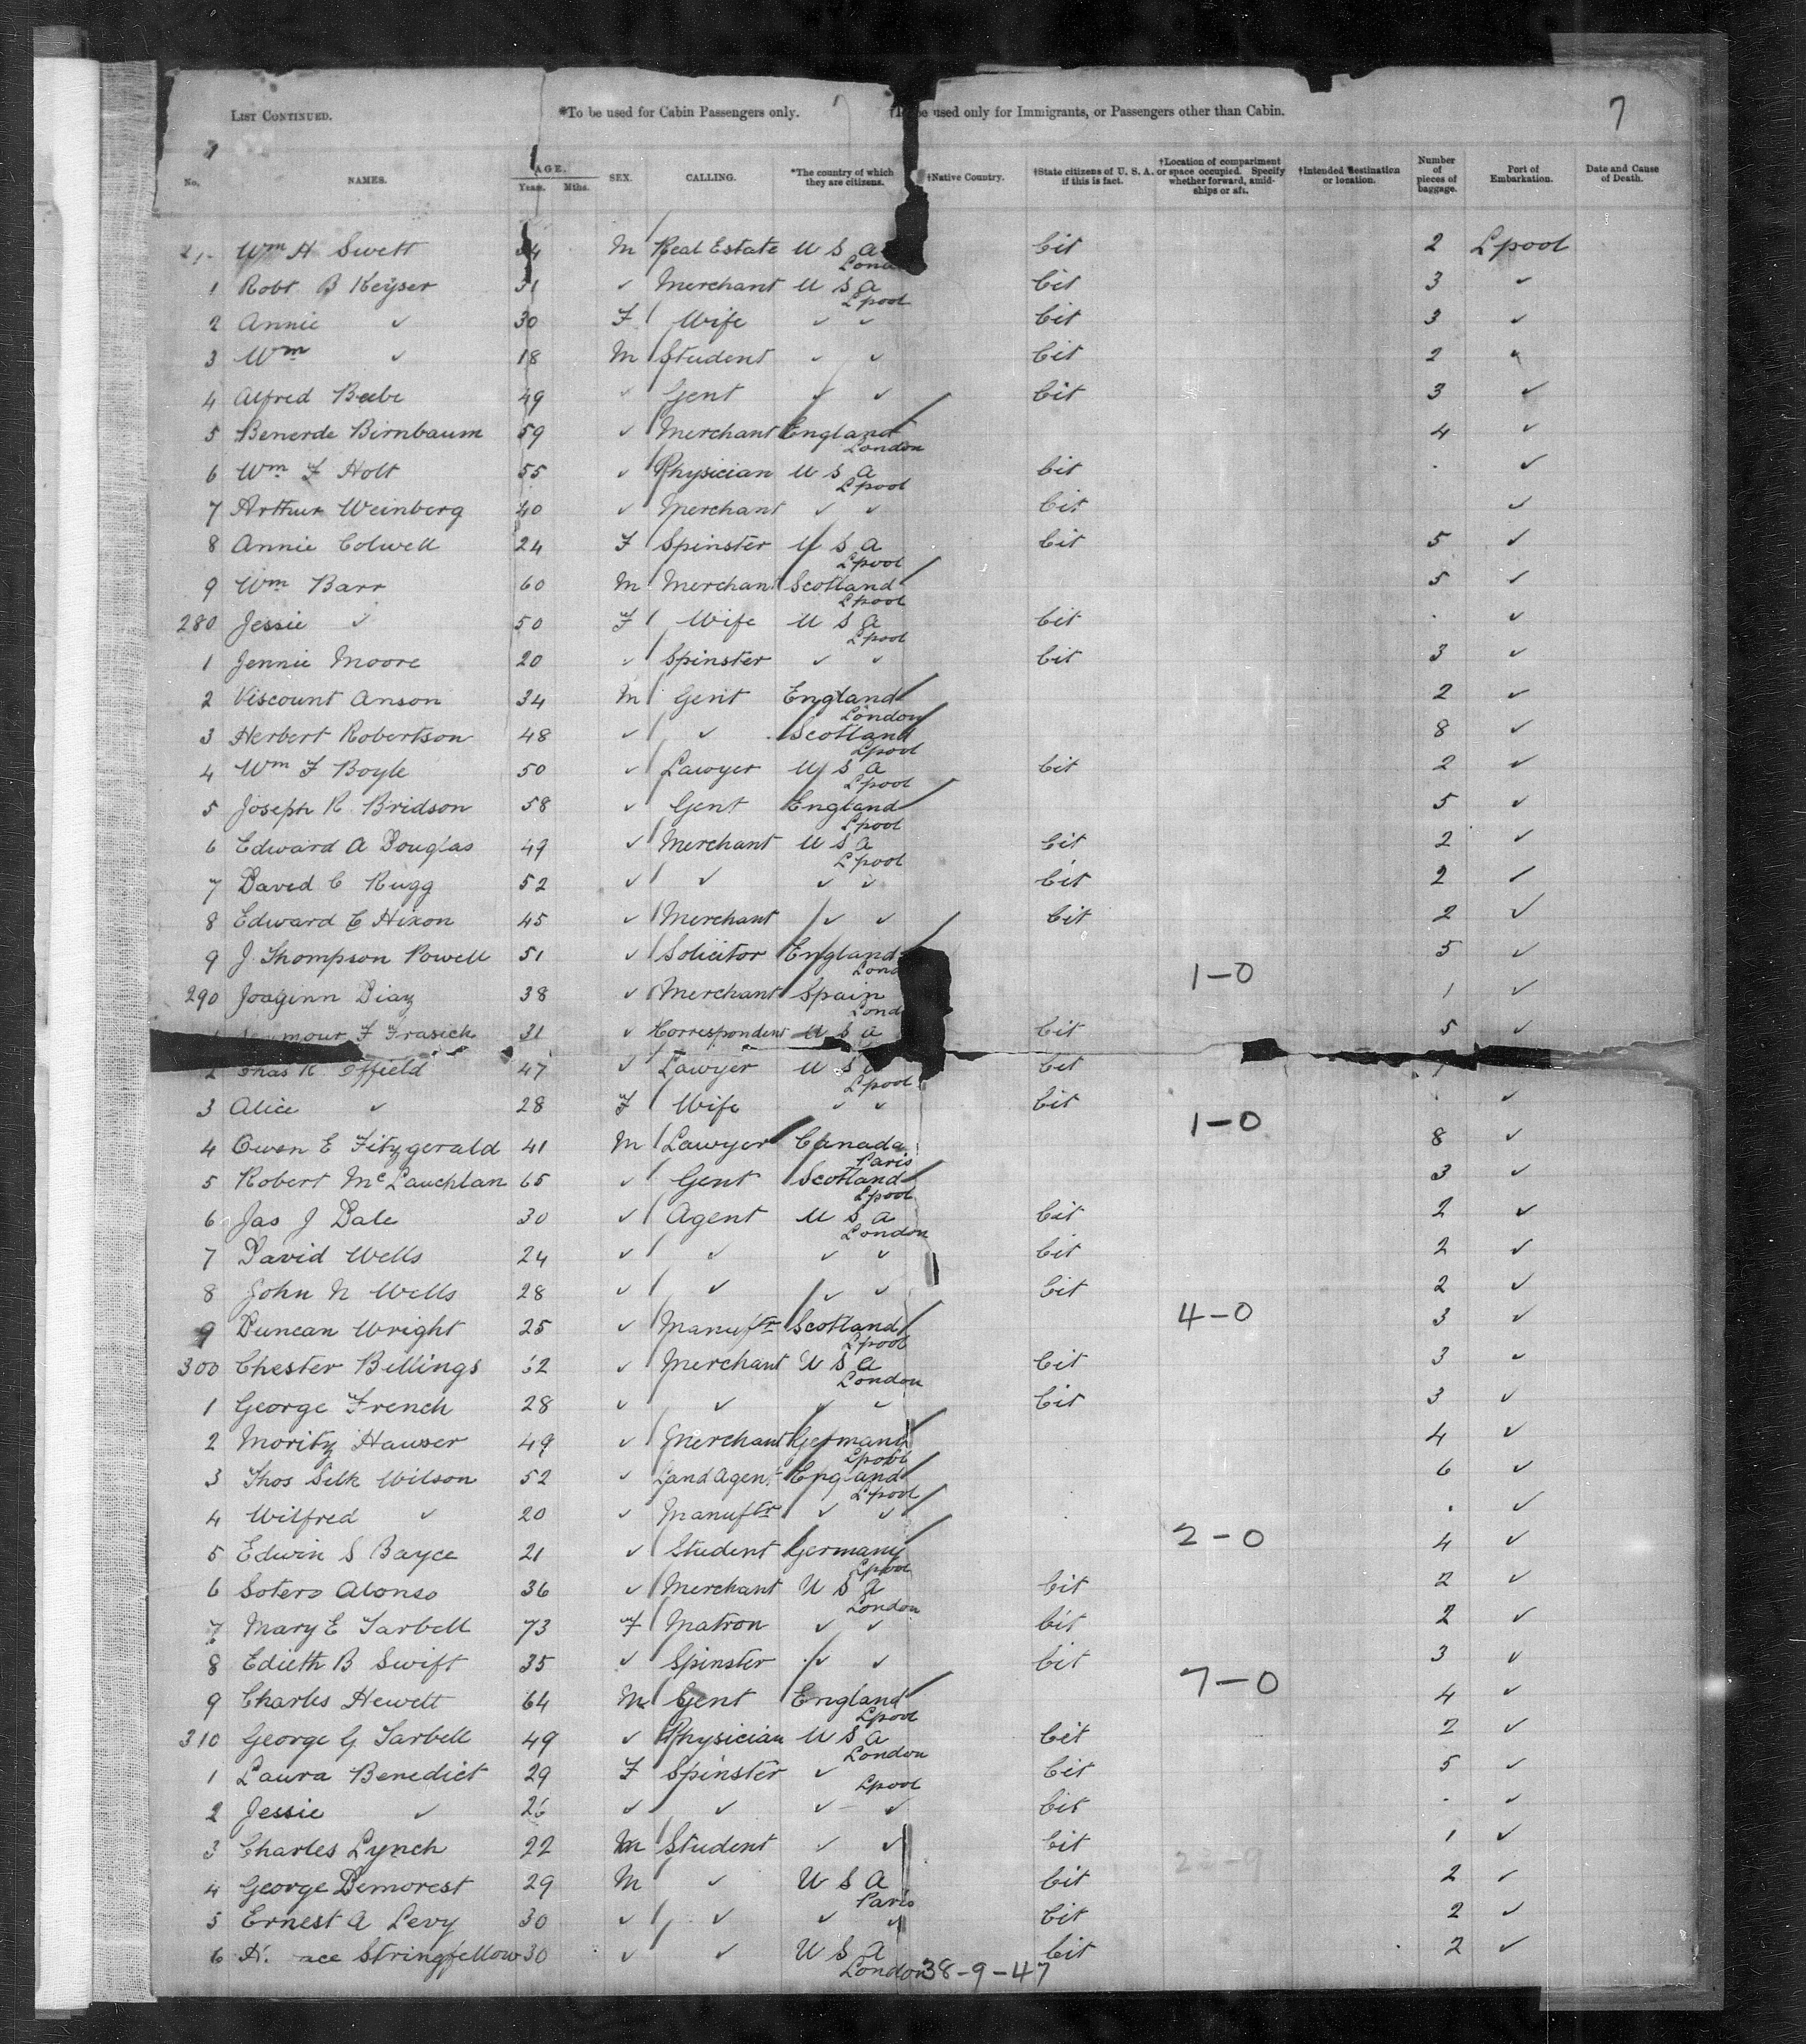 LIST CONTINUED. *To be used for Cabin Passengers only. be used only for Immigrants, or Passengers other than Cabin. 7
No. NAMES. AGE. Years. Mths. SEX. CALLING. *The country of which they are citizens. †Native Country. †State citizens of U. S. A. if this is fact. †Location of compartment or space occupied. Specify whether forward, amidships or aft. †Intended Destination or location. Number of pieces of baggage. Port of Embarkation. Date and Cause of Death.
Wm H Swett M Real Estate U S A Cit 2 Lpool
1 Robt B Keyser 31 ✓ Merchant U S A Cit 3 ✓
Lpool
2 Annie ✓ 30 F Wife ✓ ✓ Cit 3 ✓
3 Wm ✓ 18 M Student ✓ ✓ Cit 2 ✓
4 Alfred Beebe 49 ✓ Gent ✓ ✓ Cit 3 ✓
5 Benerde Birnbaum 59 ✓ Merchant England 4 ✓
London
6 Wm F Holt 55 ✓ Physician U S A Cit . ✓
Lpool
7 Arthur Weinberg 40 ✓ Merchant ✓ ✓ Cit ✓
8 Annie Colwell 24 F Spinster U S A Cit 5 ✓
Lpool
9 Wm Barr 60 M Merchant Scotland 5 ✓
Lpool
280 Jessie ✓ 50 F Wife U S A Cit . ✓
Lpool
1 Jennie Moore 20 ✓ Spinster ✓ ✓ Cit 3 ✓
2 Viscount Anson 34 M Gent England 2 ✓
London
3 Herbert Robertson 48 ✓ ✓ Scotland 8 ✓
Lpool
4 Wm F Boyle 50 ✓ Lawyer U S A Cit 2 ✓
Lpool
5 Joseph R Bridson 58 ✓ Gent England 5 ✓
Lpool
6 Edward A Douglas 49 ✓ Merchant U S A Cit 2 ✓
Lpool
7 David C Rugg 52 ✓ ✓ ✓ ✓ Cit 2 ✓
8 Edward C Hixon 45 ✓ Merchant ✓ ✓ Cit 2 ✓
9 J. Thompson Powell 51 ✓ Solicitor England 5 ✓
Lond 1-0
290 Joaginn Diaz 38 ✓ Merchant Spain 1 ✓
Lond
F Frasich 31 ✓ Correspondent U S A Cit 5 ✓
2 Chas R Offield 47 ✓ Lawyer U S Cit
Lpool
3 Alice ✓ 28 F Wife ✓ ✓ Cit . ✓
1-0
4 Owen E Fitzgerald 41 M Lawyer Canada 8 ✓
Paris
5 Robert McLauchlan 65 ✓ Gent Scotland 3 ✓
Lpool
6 Jas J Dale 30 ✓ Agent U S A Cit 2 ✓
London
7 David Wells 24 ✓ ✓ ✓ ✓ Cit 2 ✓
8 John N Wells 28 ✓ ✓ ✓ ✓ Cit 2 ✓
9 Duncan Wright 25 ✓ Manuftr Scotland 4-0 3 ✓
Lpool
300 Chester Billings 62 ✓ Merchant U S A Cit 3 ✓
London
1 George French 28 ✓ ✓ ✓ ✓ Cit 3 ✓
2 Moritz Hauser 49 ✓ Merchant Germany 4 ✓
Lpool
3 Thos Silk Wilson 52 ✓ Land Agent England 6 ✓
Lpool
4 Wilfred ✓ 20 ✓ Manuftr ✓ ✓ . ✓
2-0
5 Edwin S Bayce 21 ✓ Student Germany 4 ✓
Lpool
6 Sotero Alonso 36 ✓ Merchant U S A Cit 2 ✓
London
7 Mary E Tarbell 73 F Matron ✓ ✓ Cit 2 ✓
8 Edieth B Swift 35 ✓ Spinster ✓ ✓ Cit 3 ✓
7-0
9 Charles Hewett 64 M Gent England 4 ✓
Lpool
310 George G Tarbell 49 ✓ Physician U S A Cit 2 ✓
London
1 Laura Benedict 29 F Spinster ✓ Cit 5 ✓
Lpool
2 Jessie ✓ 26 ✓ ✓ ✓ ✓ Cit . ✓
3 Charles Lynch 22 M Student ✓ ✓ Cit 1 ✓
4 George Demorest 29 M ✓ U S A Cit 2 ✓
Paris
5 Ernest A Levy 30 ✓ ✓ ✓ ✓ Cit 2 ✓
6 Stringfellow 30 ✓ ✓ U S A Cit 2 ✓
London 38-9-47